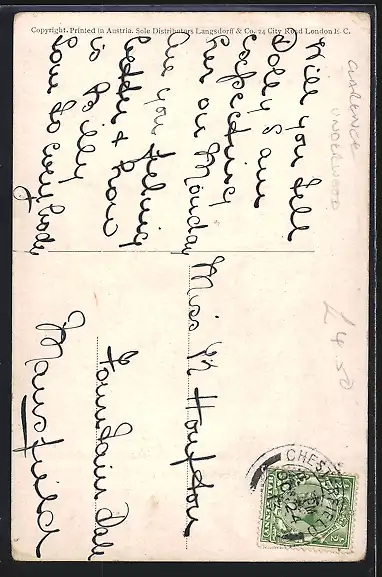 Copyright. Printed in Austria. Sole Distributors Langsdorff & Co. 24 City Road London E.C.
CLARENCE
UNDERWOOD
£4.50
Will you tell
Dolly I am
expecting
her on Monday
Are you feeling
better & how
is Billy
Love to everybody
Miss W Houfton
Fountain Dale
Mansfield
CHESTERFIELD